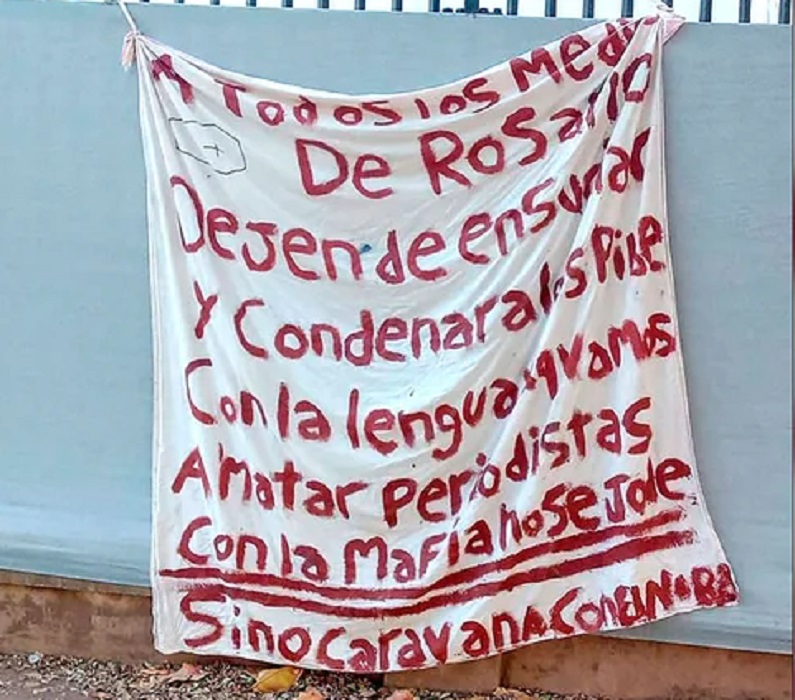 A Todos los Medi
De Rosario
Dejen de ensuciar
y Condenar a los Pibe
Con la lengua xq vamos
A Matar Periodistas
Con la Mafia no se Jode
Sino Caravana Con El